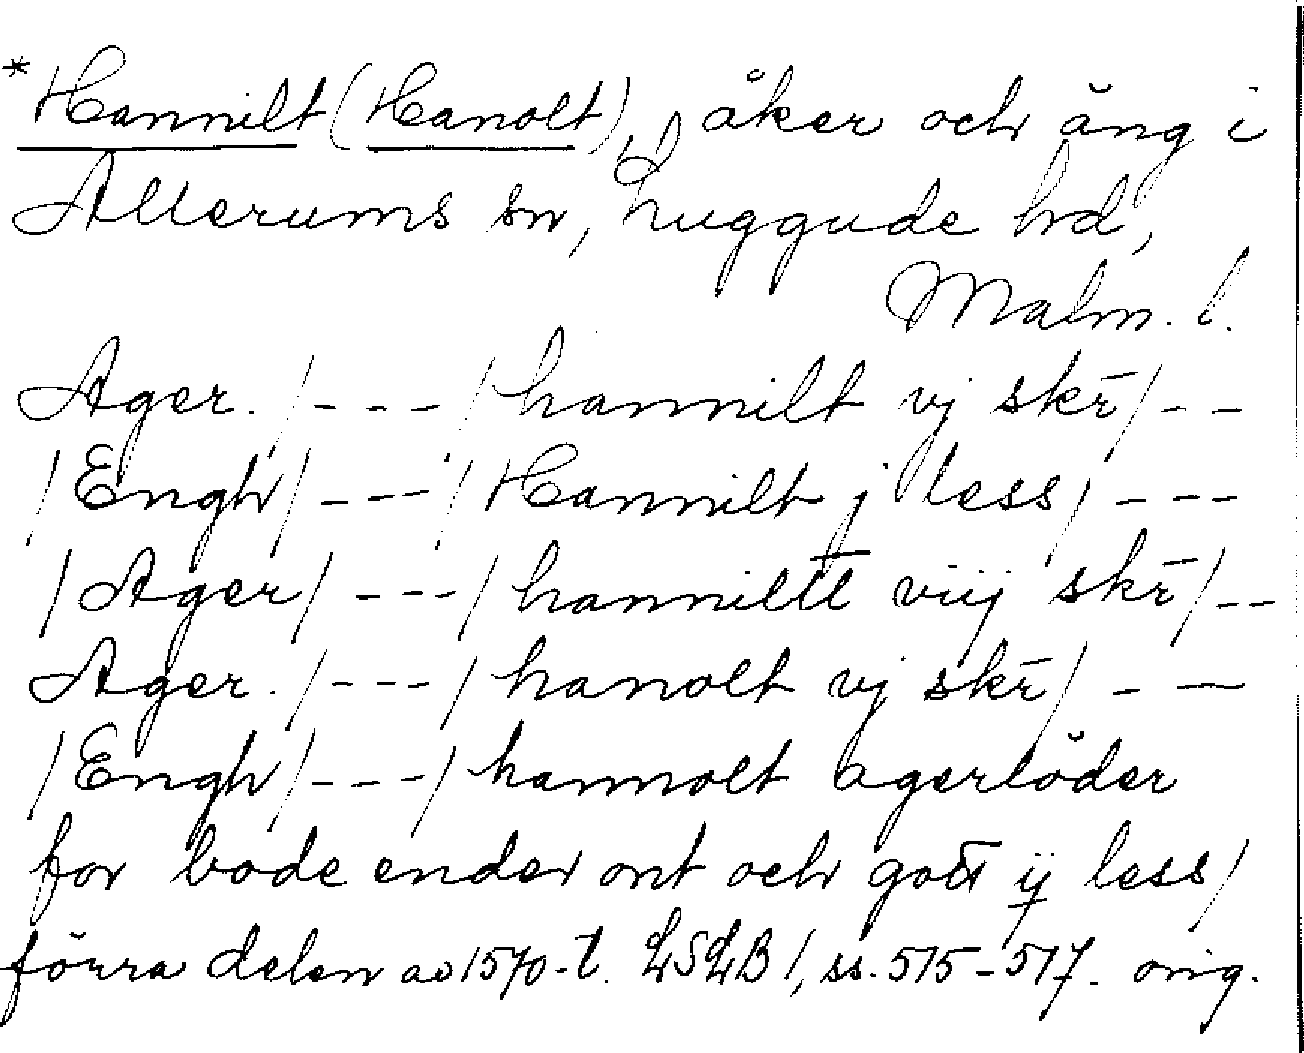 *Hannilt (Hanolt), åker och äng i
Allerums sn, Luggude hd,
Malm. l.
Ager. / - - - / hannilt vj skr̄ / - -
/ Engh / - - - / Hannilt j less / - - -
/ Ager / - - - / hanniltt viij skr̄ / - -
Ager. / - - - / hanolt vj skr̄ / - -
/ Engh / - - - / hannolt agerlöder
for bode ender ont och gott ij less /
förra delen av 1570-t. LSLB 1, ss. 515-517. orig.